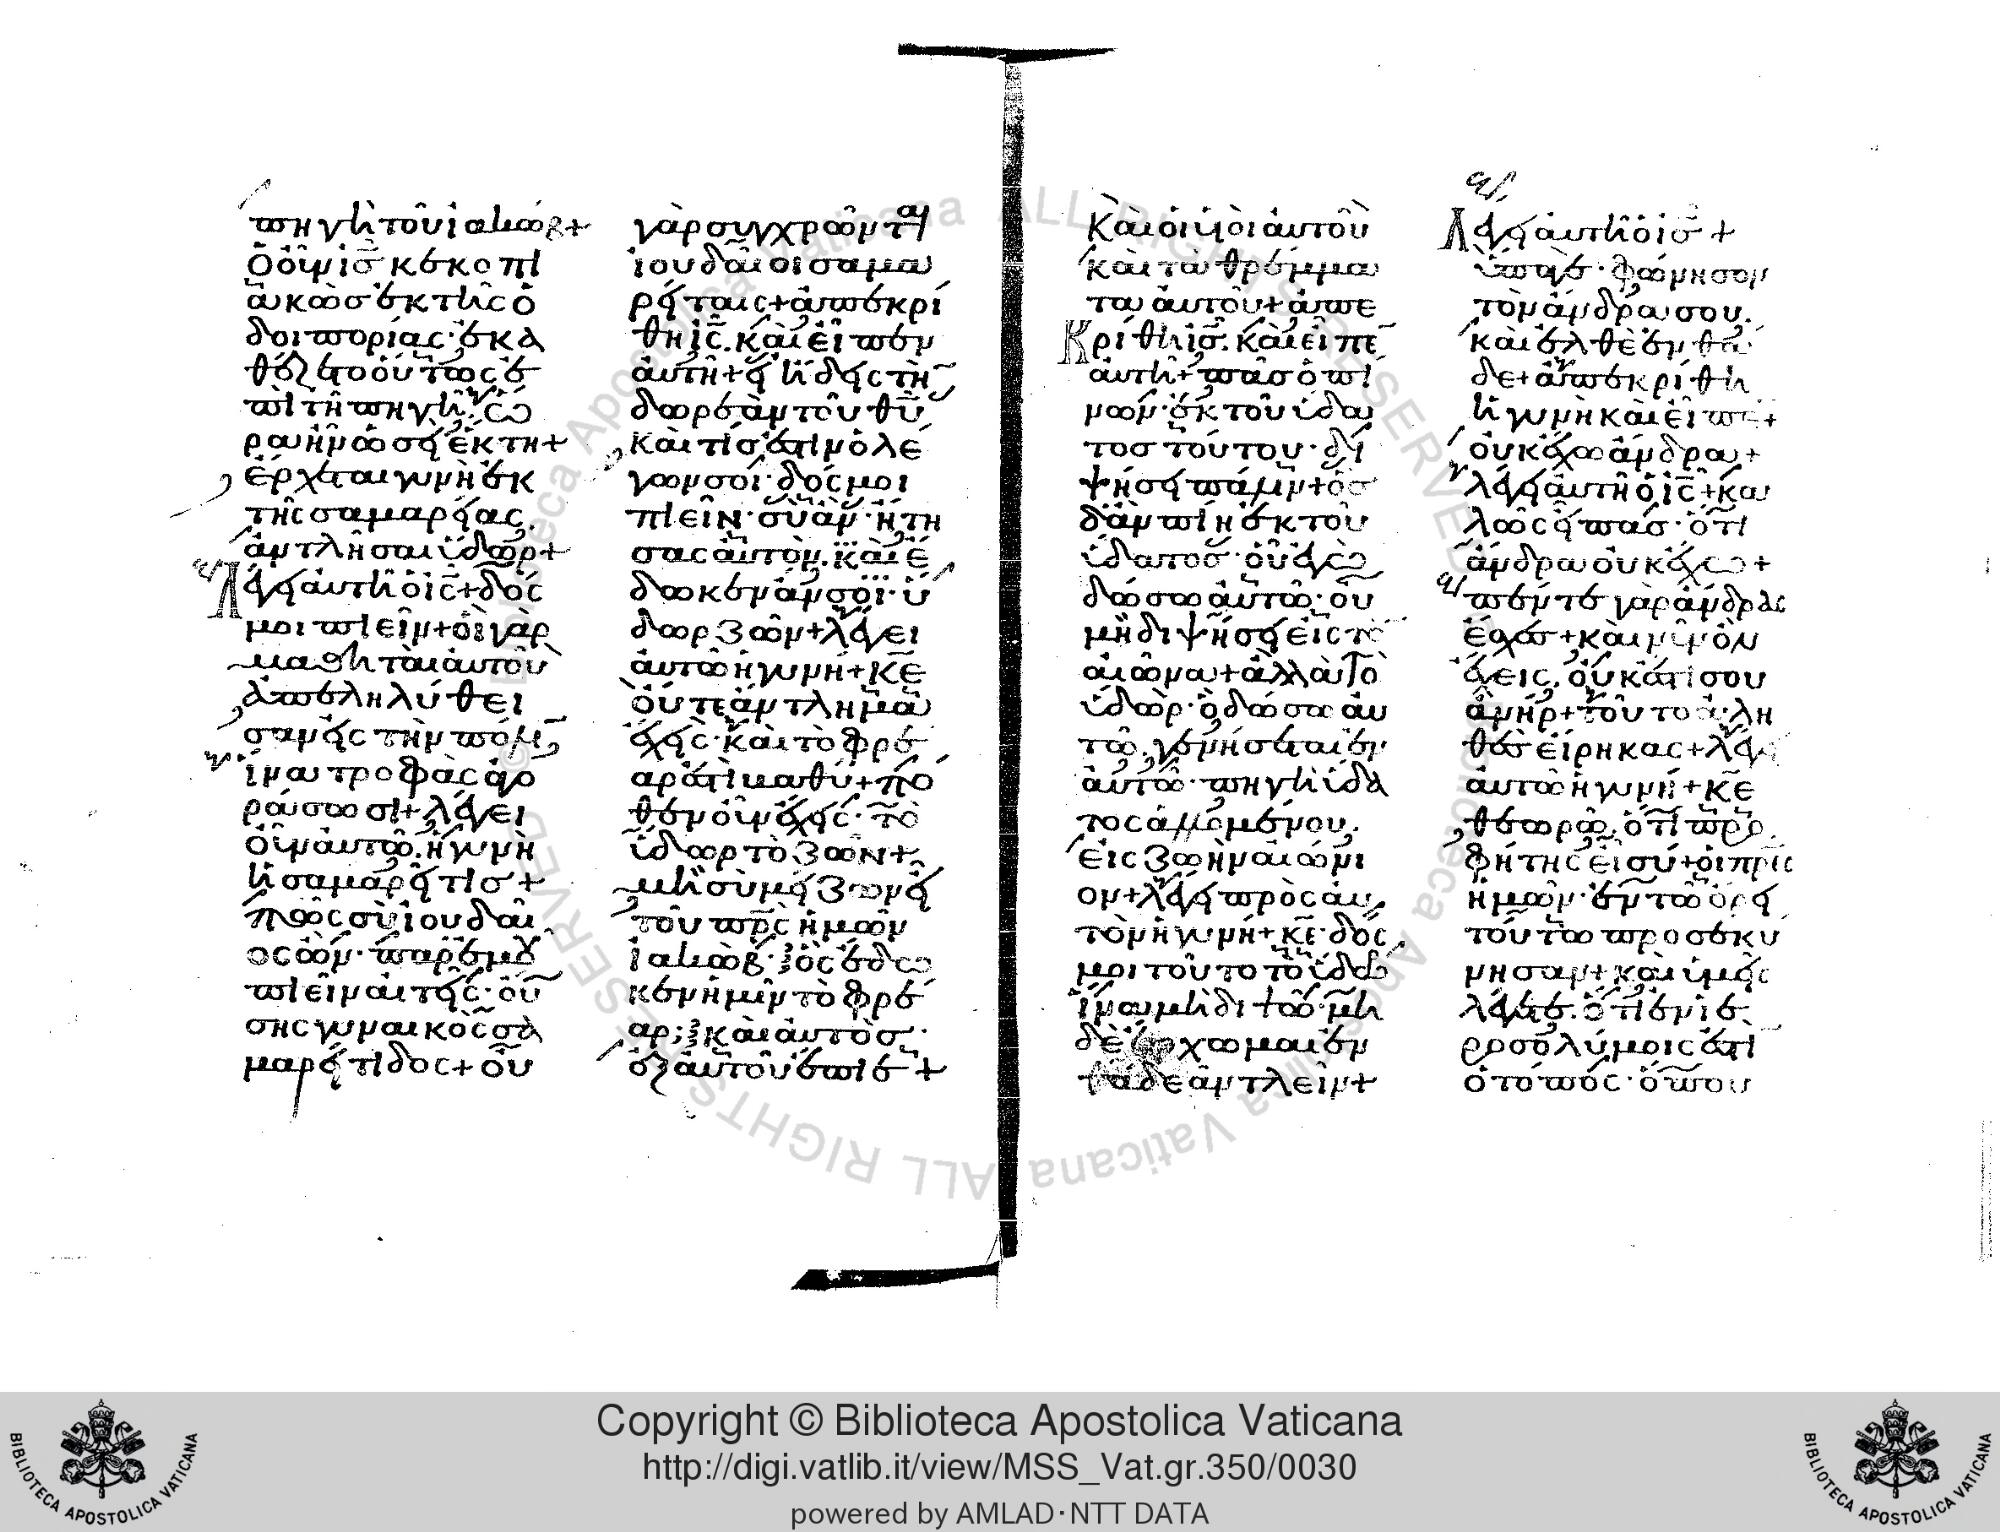 πηγὴ τοῦ ἰακώβ+
Ὁ οὖν ις κεκοπι
ακὼς ἐκ τῆς ὁ
δοιπορίας· ἐκα
θέζετο οὕτως ἐ
πὶ τῆ πηγῆ· ὥ
ρα ἦν ὡσεὶ ἕκτη+
ἔρχεται γυνὴ ἐκ
τῆς σαμαρείας.
ἀντλῆσαι ὕδωρ+
Λέγει αὐτῆ ὁ ις+ δός
μοι πιεῖν+ οἱ γὰρ
μαθηταὶ αὐτοῦ
ἀπεληλύθει
σαν εἰς τὴν πόλιν
ἵνα τροφὰς ἀγο
ράσωσι+ λέγει
οὖν αὐτῶ. ἡ γυνὴ
ἡ σαμαρεῖτις+
πῶς σὺ ἰουδαῖ
ος ὢν· παρ' ἐμοῦ
πιεῖν αἰτεῖς· οὔ
σης γυναικὸς σα
μαρείτιδος+ οὐ
γὰρ συγχρῶνται
ἰουδαῖοι σαμα
ρείταις+ ἀπεκρί
θη ις. καὶ εἶπεν
αὐτῆ+ εἰ ἤδεις τὴν
δωρεὰν τοῦ θυ
καὶ τίς ἐστιν ὁ λέ
γων σοι· δός μοι
πιεῖν· σὺ ἂν ἤτη
σας αὐτὸν. καὶ ἔ
δωκεν ἄν σοι· ὕ
δωρ ζῶν+ λέγει
αὐτῶ ἡ γυνή+ κε
οὔτε ἄντλημα
ἔχεις· καὶ τὸ φρέ
αρ ἐστὶ βαθύ+ πό
θεν οὖν ἔχεις· τὸ
ὕδωρ τὸ ζῶν+
μὴ σὺ μείζων εἶ
τοῦ πρς ἡμῶν
ἰακὼβ· ὃς ἔδω
κεν ἡμῖν τὸ φρέ
αρ; καὶ αὐτὸς
ἐξ αὐτοῦ ἔπιε+
Καὶ οἱ υἱοὶ αὐτοῦ
καὶ τὰ θρέμμα
τα αὐτοῦ+ ἀπε
Κρίθη ις. καὶ εἶπε
αὐτῆ+ πᾶς ὁ πί
νων· ἐκ τοῦ ὕδα
τος τούτου· δι
ψήσει πάλιν+ ὃς
δ' ἂν πίη ἐκ τοῦ
ὕδατος· οὗ ἐγὼ
δώσω αὐτῶ· οὐ
μὴ διψήση εἰς τὸν
αἰῶνα+ ἀλλὰ τὸ
ὕδωρ· ὃ δώσω αὐ
τῶ. γενήσεται ἐν
αὐτῶ· πηγὴ ὕδα
τος ἁλλομένου.
εἰς ζωὴν αἰώνι
ον+ λέγει πρὸς αὐ
τὸν ἡ γυνή+ κε· δός
μοι τοῦτο τὸ ὕδωρ
ἵνα μὴ διψῶ· μη
δὲ ἔρχωμαι ἐν
θάδε ἀντλεῖν+
Λέγει αὐτῆ ὁ ις+
ὕπαγε· φώνησον
τὸν ἄνδρα σου.
καὶ ἐλθὲ ἐνθά
δε+ ἀπεκρίθη
ἡ γυνὴ καὶ εἶπε+
οὐκ ἔχω ἄνδρα+
λέγει αὐτῆ ὁ ις+ κα
λῶς εἶπας· ὅτι
ἄνδρα οὐκ ἔχω+
πέντε γὰρ ἄνδρας
ἔσχες+ καὶ νῦν ὃν
ἔχεις. οὐκ ἔστι σου
ἀνήρ+ τοῦτο ἀλη
θὲς εἴρηκας+ λέγει
αὐτῶ ἡ γυνή+ κε
θεωρῶ. ὅτι προ
φήτης εἶ σύ+ οἱ πρες
ἡμῶν· ἐν τῶ ὄρει
τούτω προσεκύ
νησαν+ καὶ ὑμεῖς
λέγετε. ὅτι ἐν ἱε
ροσολύμοις ἐστὶ
ὁ τόπος· ὅπου
Copyright © Biblioteca Apostolica Vaticana
http://digi.vatlib.it/view/MSS_Vat.gr.350/0030
powered by AMLAD·NTT DATA
BIBLIOTECA APOSTOLICA VATICANA
BIBLIOTECA APOSTOLICA VATICANA